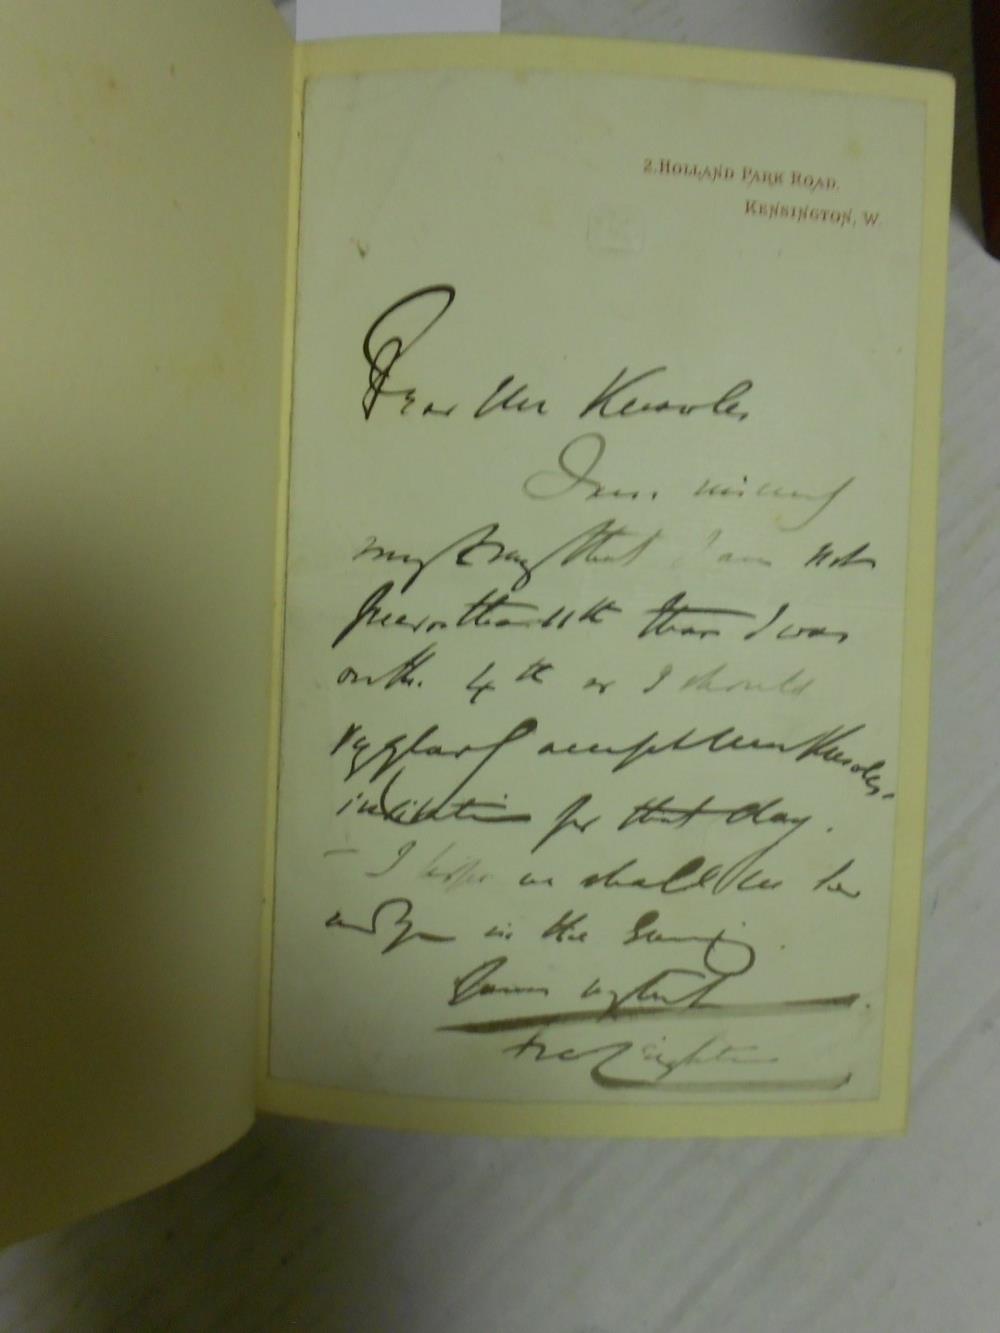 2. HOLLAND PARK ROAD.
KENSINGTON, W.
Dear Mr Knowles
I am
my that I am not
on the 11th than I was
on the 4th or I should
accept Mrs Knowles'
invitation for that day.
– I hope we shall see her
and you in the
Yours
Fred Leighton